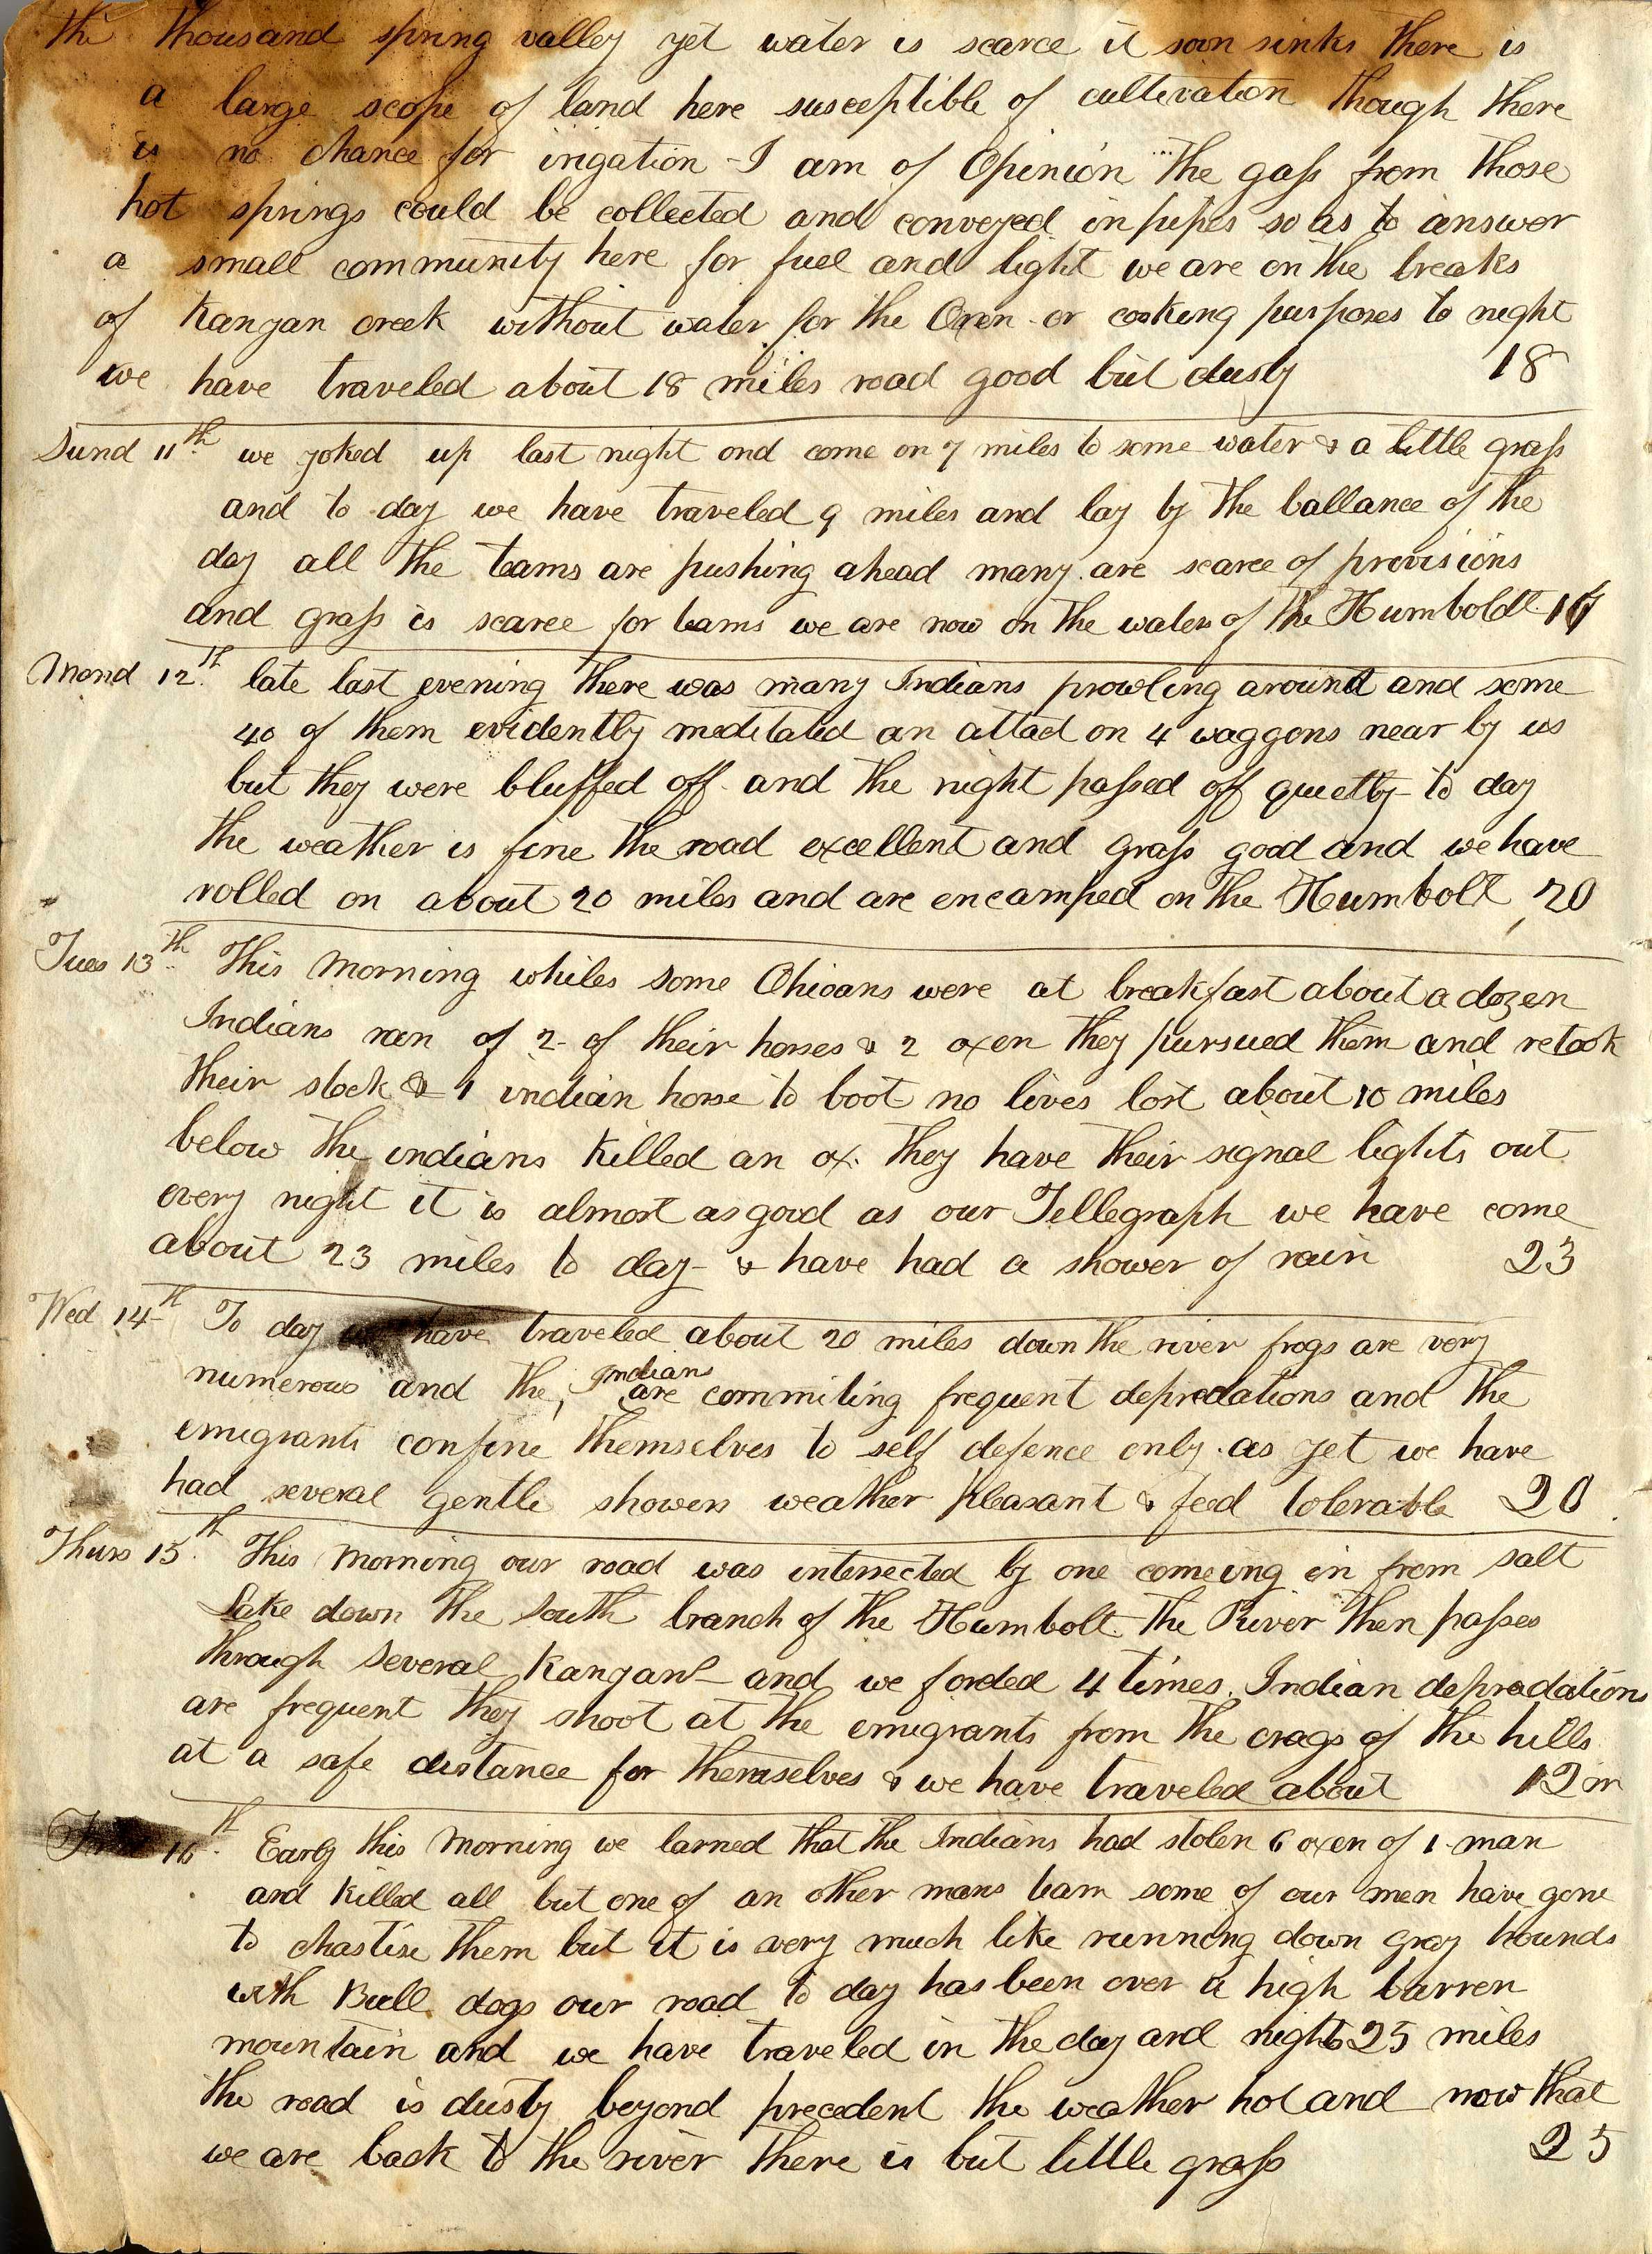 the thousand spring valley yet water is scarce it soon sinks there is
a large scope of land here susceptible of cultivation though there
is no chance for irigation - I am of Opinion the gass from those
hot springs could be collected and conveyed in pipes so as to answer
a small community here for fuel and light we are on the breaks
of Kanyan creek without water for the Oxen or cooking purposes to night
we have traveled about 18 miles road good but dusty 18
Sund 11th we yoked up last night and come on 7 miles to some water & a little grass
and to day we have traveled 9 miles and lay by the ballance of the
day all the teams are pushing ahead many are scarce of provisions
and grass is scarce for teams we are now on the waters of the Humboldt 16
Mond 12th late last evening there was many Indians prowling around and some
40 of them evidently meditated an attact on 4 waggons near by us
but they were bluffed off and the night passed off quietly to day
the weather is fine the road excellent and grass good and we have
rolled on about 20 miles and are encamped on the Humbolt 20
Tues 13th This Morning whiles some Ohioans were at breakfast about a dozen
Indians ran of 2 of their horses & 2 oxen they pursued them and retook
their stock & 1 indian horse to boot no lives lost about 10 miles
below the indians killed an ox. they have their signal lights out
every night it is almost as good as our Tellegraph we have come
about 23 miles to day & have had a shower of rain 23
Wed 14th To day we have traveled about 20 miles down the river frogs are very
numerous and the Indians are commiting frequent depredations and the
emigrants confine themselves to self defence only as yet we have
had several gentle showers weather pleasant & feed tolerable 20
Thurs 15th This Morning our road was intersected by one comeing in from salt
Lake down the South branch of the Humbolt the River then passes
through several Kanyans - and we forded 4 times. Indian depredations
are frequent they shoot at the emigrants from the crags of the hills
at a safe distance for themselves & we have traveled about 12 m
16th Early this Morning we larned that the Indians had stolen 6 oxen of 1 man
and killed all but one of an other mans team some of our men have gone
to chastise them but it is very much like running down gray hounds
with Bull dogs our road to day has been over a high barren
mountain and we have traveled in the day and night 25 miles
the road is dusty beyond precedent the weather hot and now that
we are back to the river there is but little grass 25